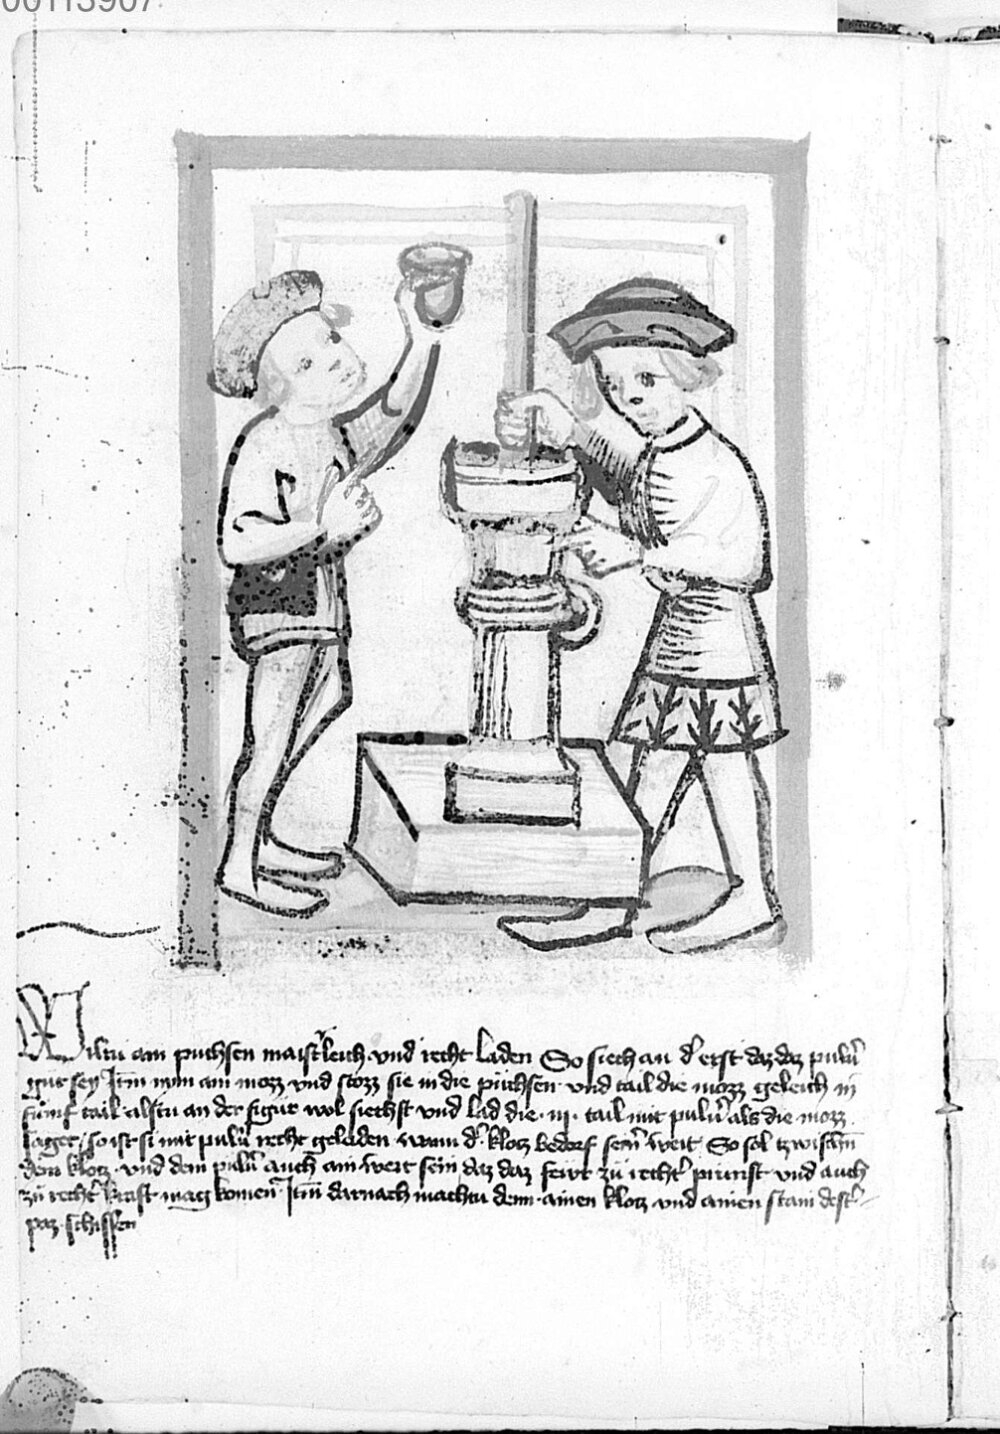 00113907
Wiltu ain puchsen maistʼleich vnd recht laden So siech an dʼ erst daz daz puluʼ
gut sey Itm nim ain mozz vnd stozz sie in die püchsen vnd tail die mozz geleich in
fünf tail alstu an der figur wol siechst vnd lad die · iij · tail mit puluʼ als die mozz
sagt / so ist si mit puluʼ recht geladen wann dʼ klotz bedorf seinʼ weit So sol tzwischn̄
dem klotz vnd dem puluʼ auch ain wert sein daz daz fewr zü rechtʼ prunst vnd auch
zü rechtʼ kraft mag komen Itm̄ darnach machtu denn ainen klotz vnd ainen stain destʼ
paz schissen